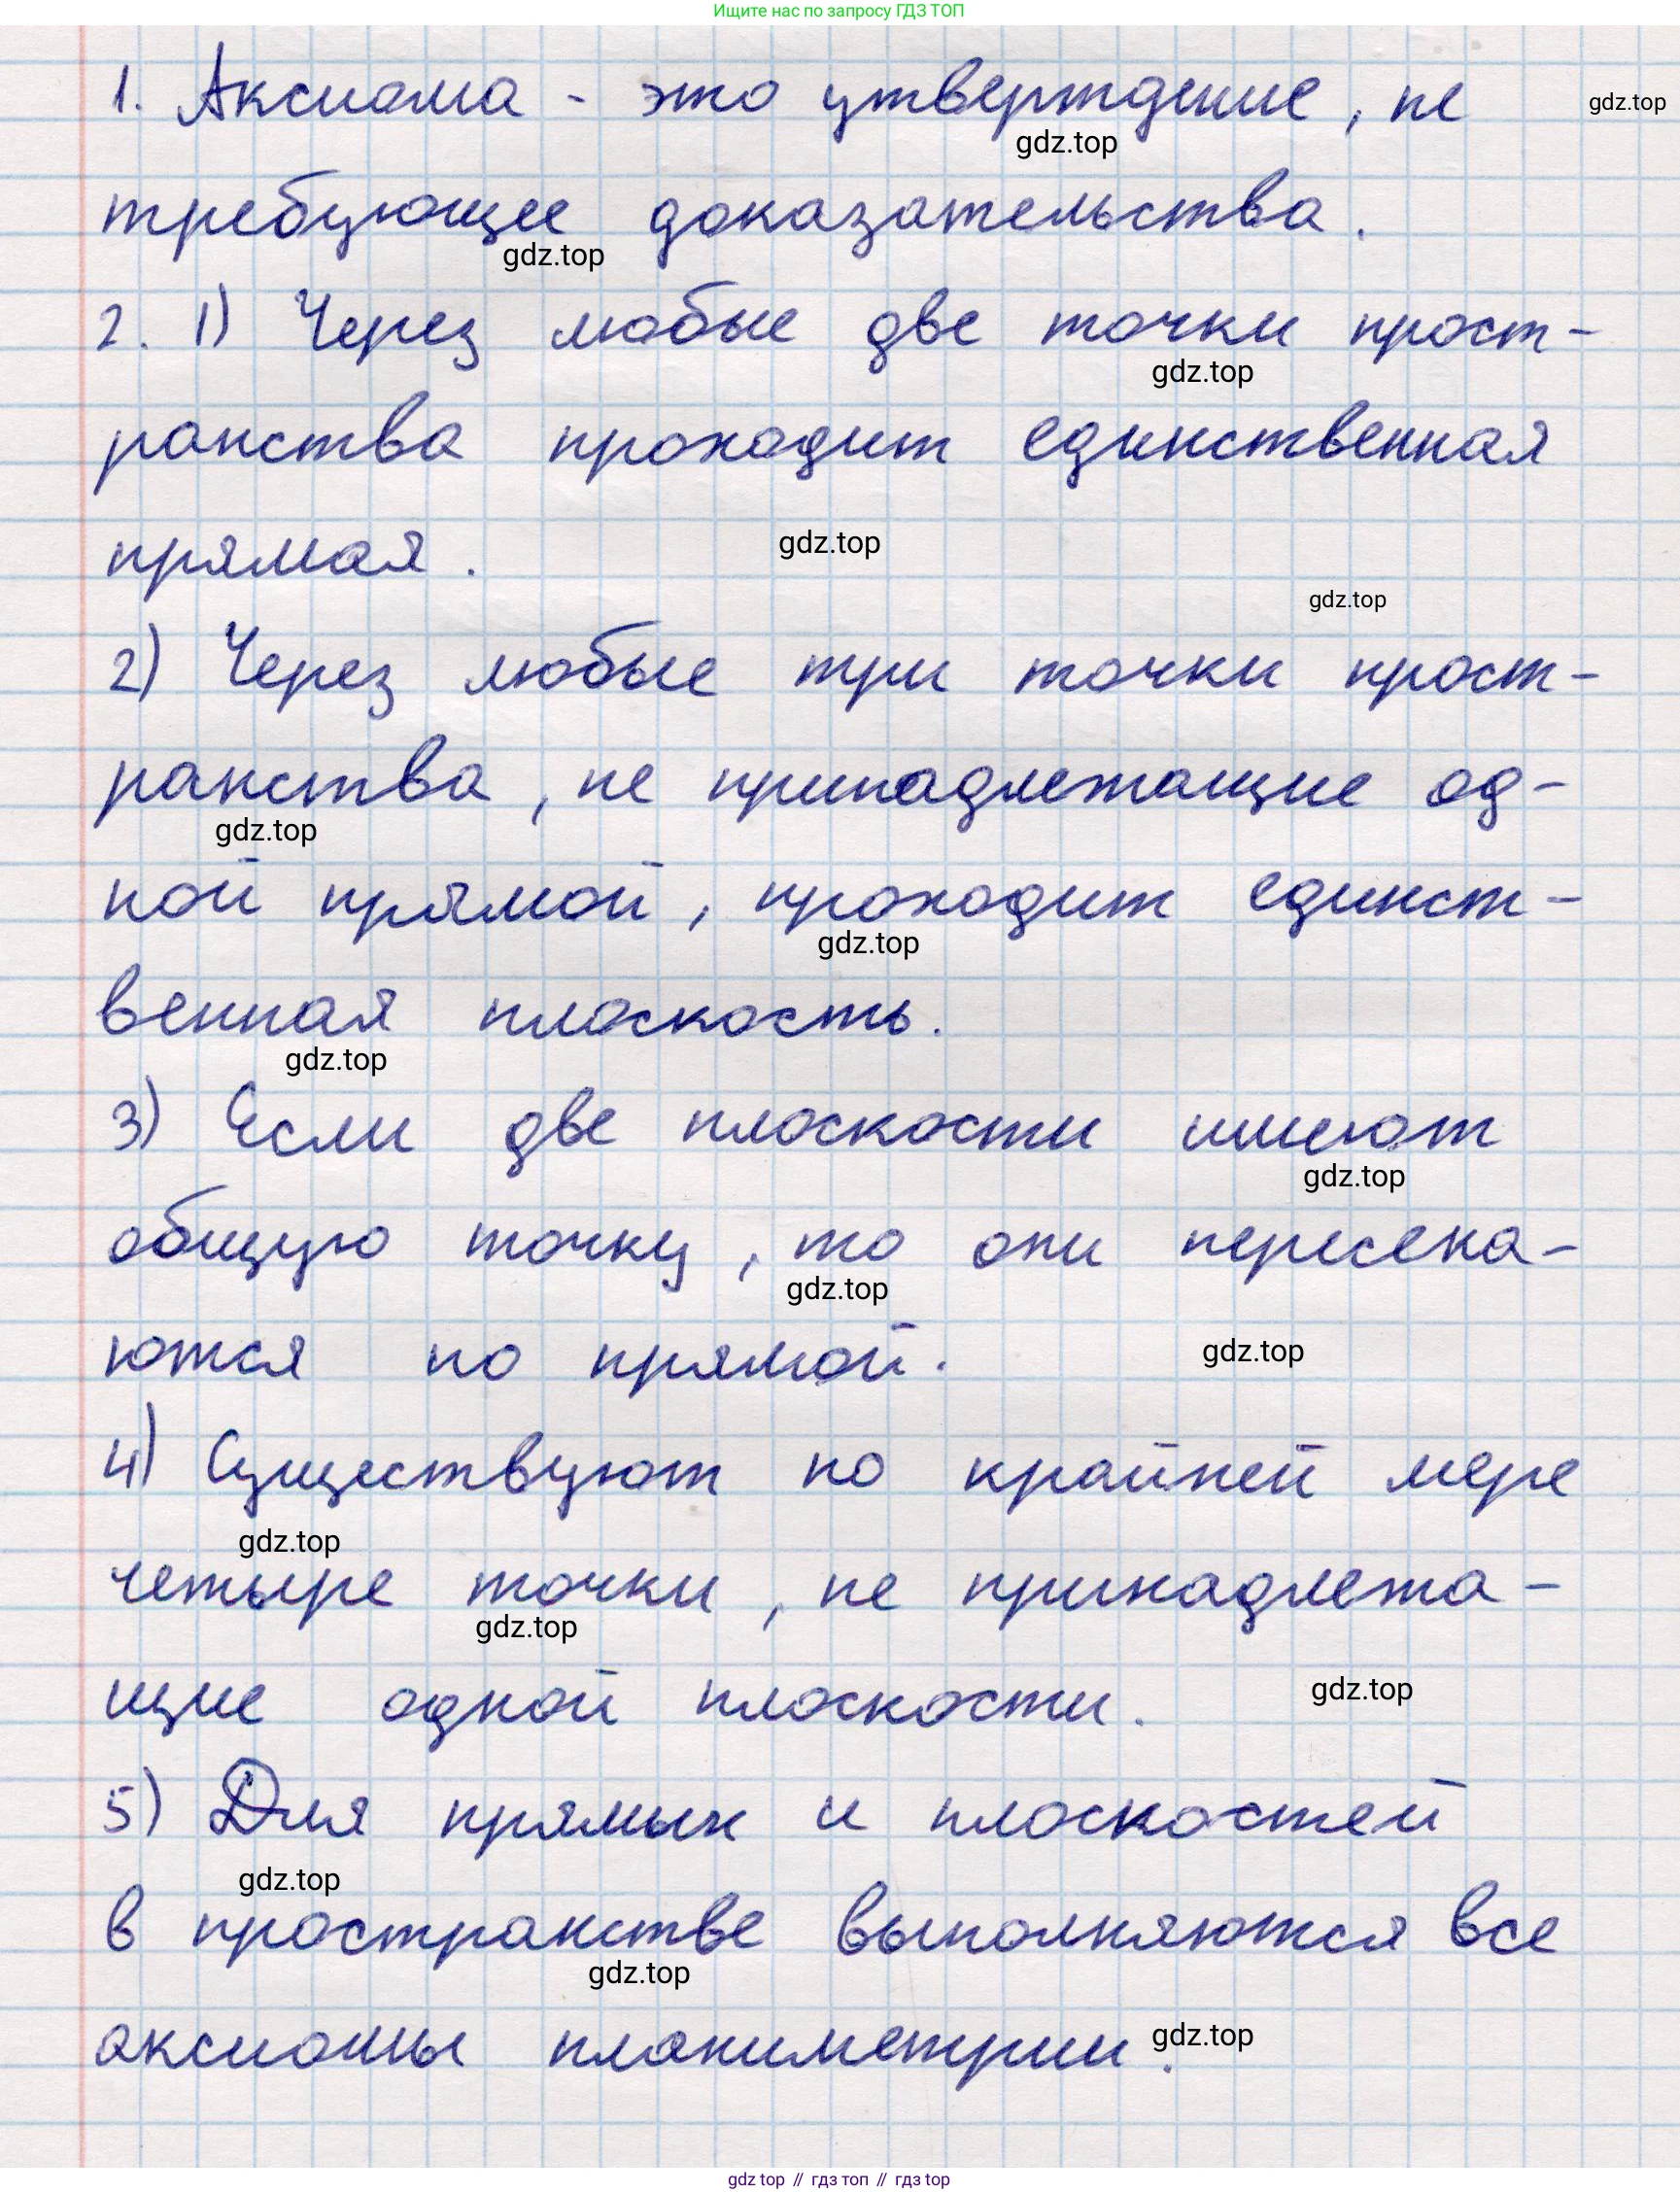 Ищите нас по запросу ГДЗ ТОП
1. Аксиома - это утверждение, не
gdz.top
gdz.top
требующее доказательства.
gdz.top
2. 1) Через любые две точки прост-
gdz.top
ранства проходит единственная
прямая.
gdz.top
gdz.top
2) Через любые три точки прост-
ранства, не принадлежащие од-
gdz.top
ной прямой, проходит единст-
gdz.top
венная плоскость.
gdz.top
3) Если две плоскости имеют
gdz.top
общую точку, то они пересека-
gdz.top
ются по прямой.
gdz.top
4) Существуют по крайней мере
gdz.top
четыре точки, не принадлежа-
gdz.top
щие одной плоскости.
gdz.top
5) Для прямых и плоскостей
gdz.top
в пространстве выполняются все
gdz.top
аксиомы планиметрии.
gdz.top
gdz top // гдз топ // гдз top